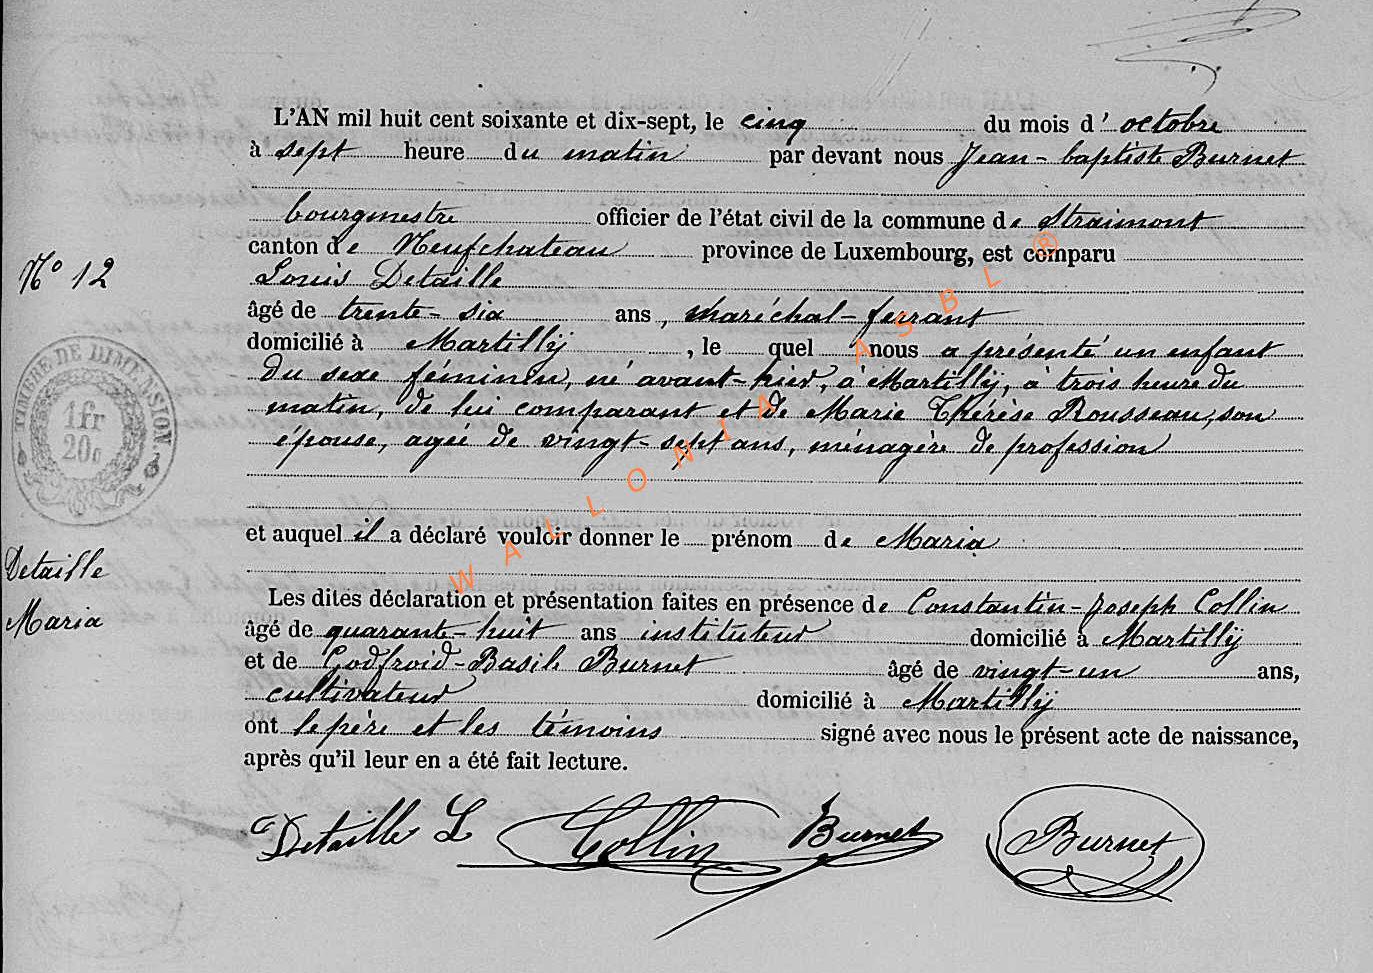 L'AN mil huit cent soixante et dix-sept, le cinq du mois d' octobre
à sept heure du matin par devant nous Jean-baptiste Burnet
bourgmestre officier de l'état civil de la commune de Straimont
canton de Neufchateau province de Luxembourg, est comparu
Louis Detaille
N° 12
âgé de trente-six ans, maréchal-ferrant
domicilié à Martilly, le quel nous a présenté un enfant
du sexe féminin, né avant-hier, à Martilly, à trois heure du
matin, de lui comparant et de Marie Thérèse Rousseau, son
épouse, agée de vingt-sept ans, ménagère de profession
TIMBRE DE DIMENSION
1fr
20c
et auquel il a déclaré vouloir donner le prénom de Maria
Detaille
Maria
Les dites déclaration et présentation faites en présence de Constantin-Joseph Collin
âgé de quarante-huit ans instituteur domicilié à Martilly
et de Godfroid-Basile Burnet âgé de vingt-un ans,
cultivateur domicilié à Martilly
ont le père et les témoins signé avec nous le présent acte de naissance,
après qu'il leur en a été fait lecture.
Detaille L Collin Burnet Burnet
WALLONIA ASBL ®